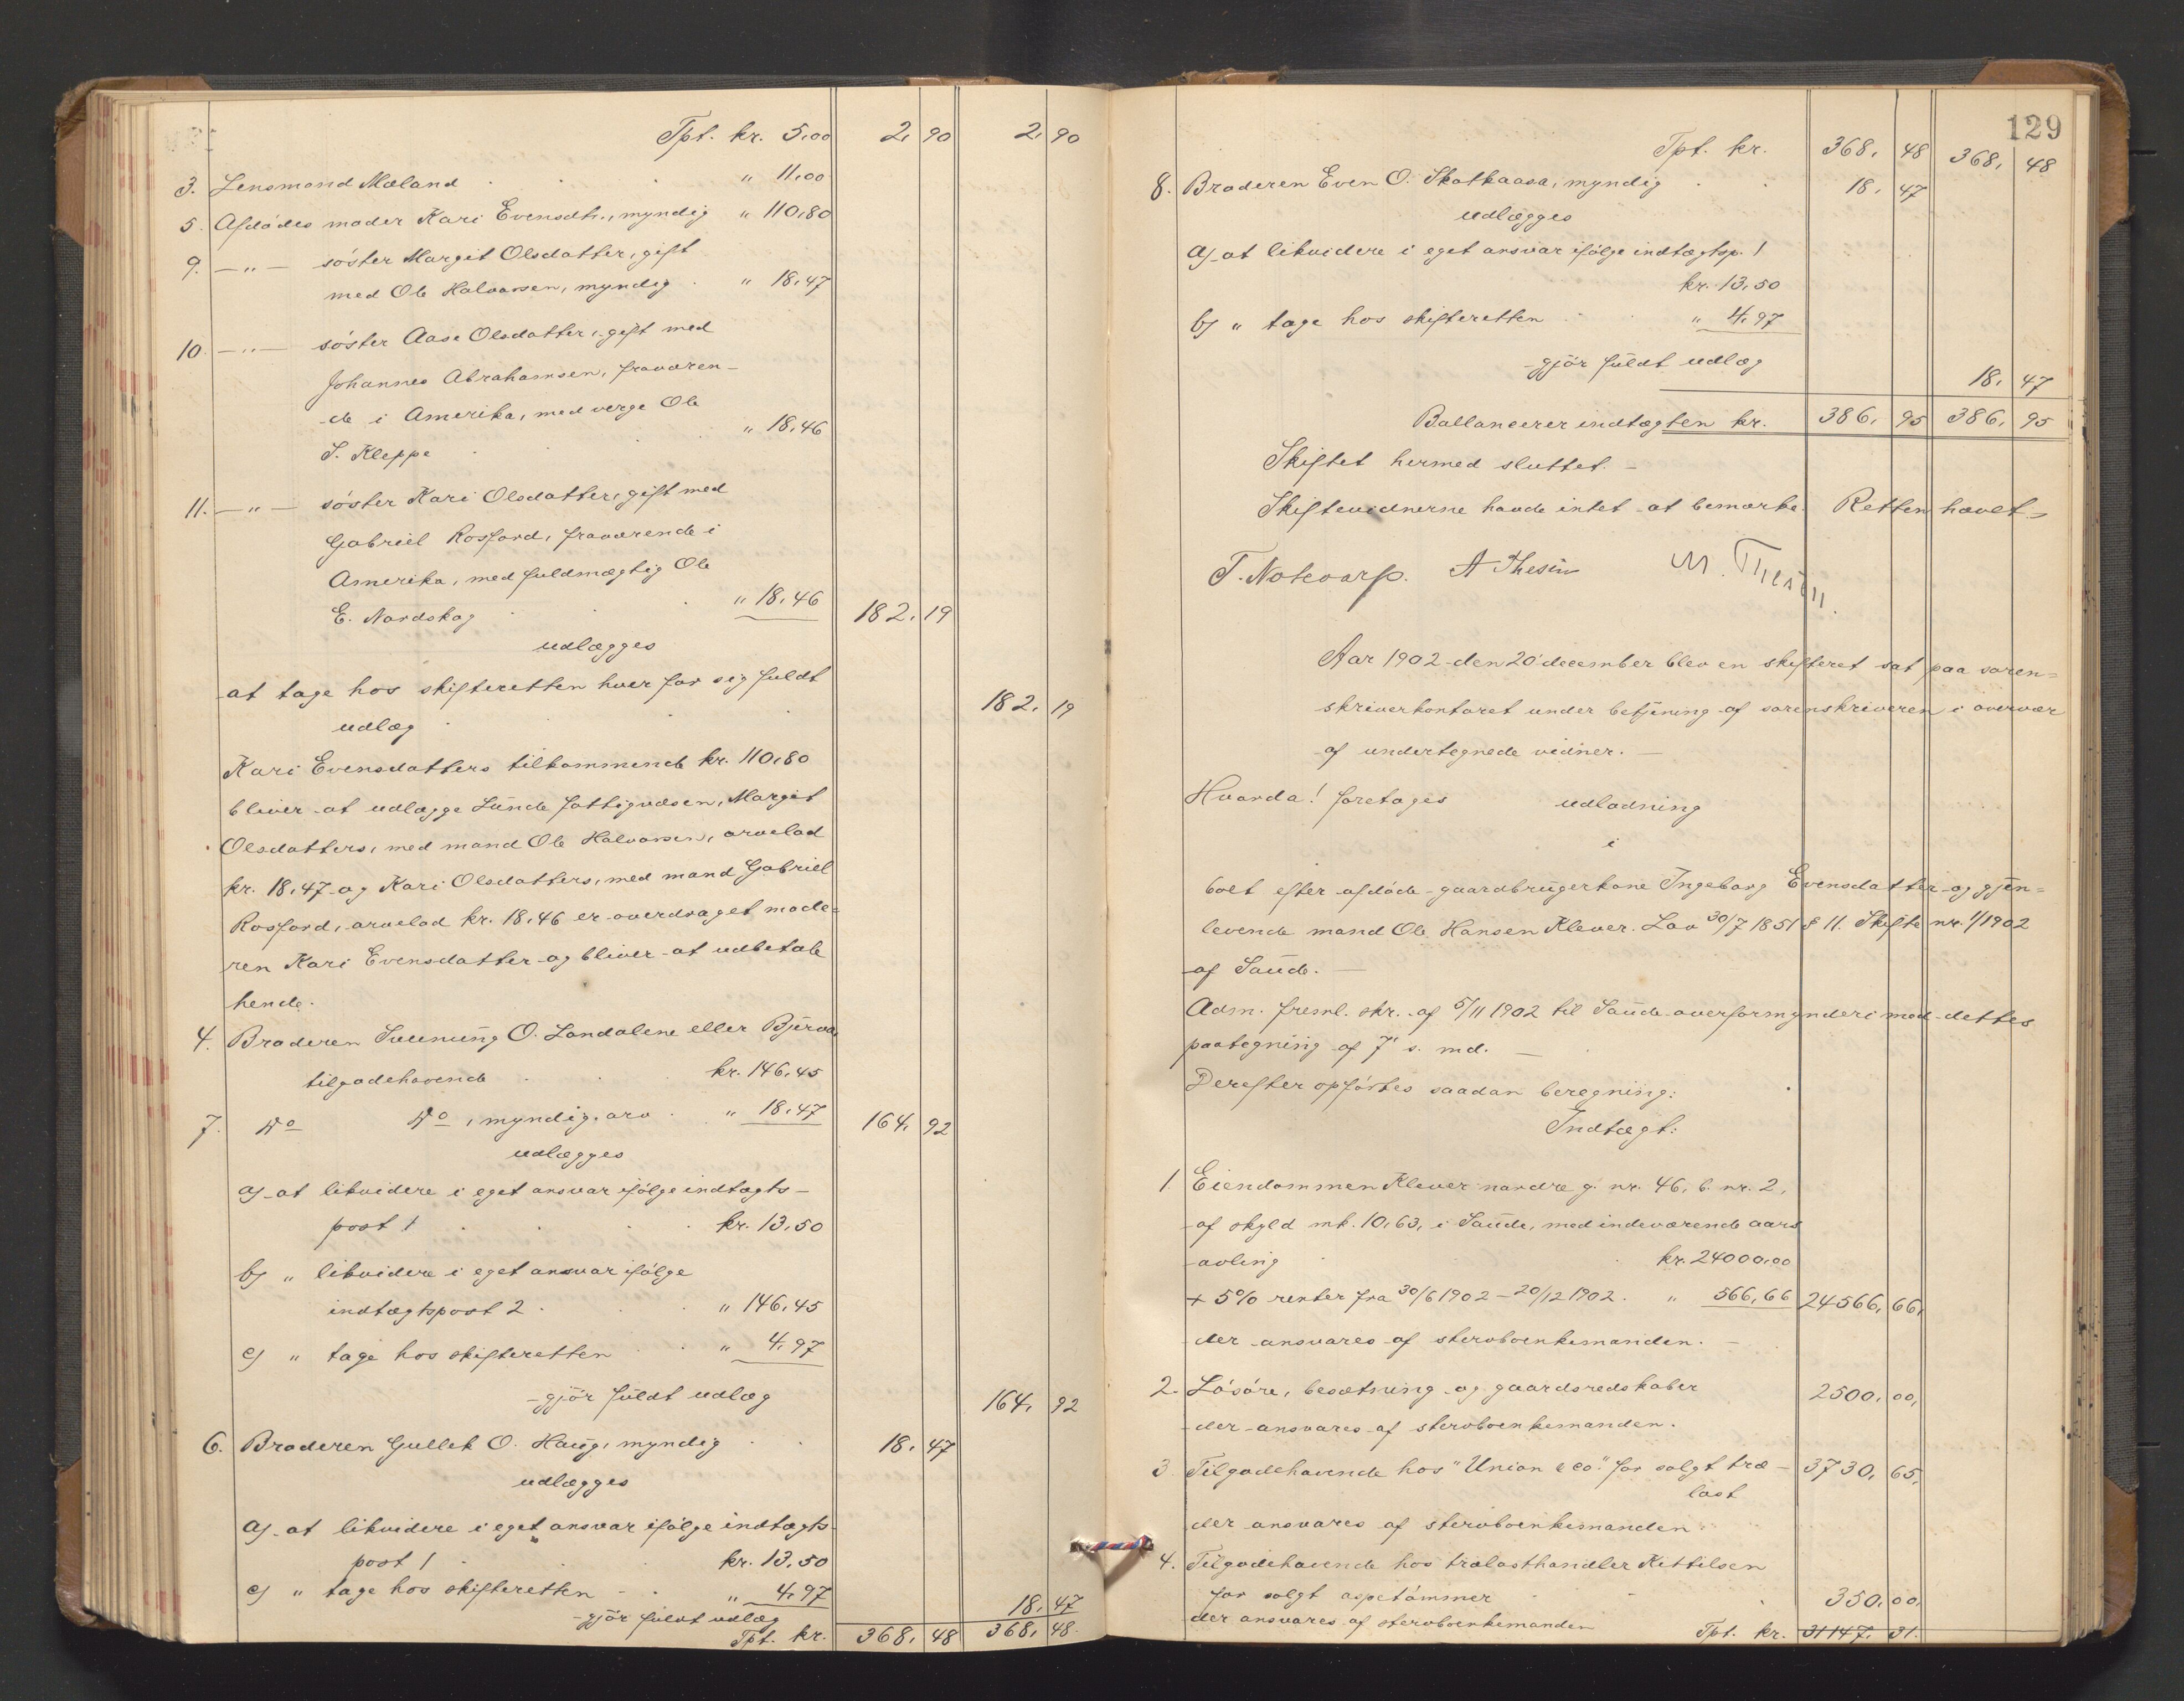 Tpt. kr. 5,00 2, 90 2, 90
3. Lensmand Mæland . . " 11,00
5. Afdødes moder Kari Evensdtr., myndig " 110,80
9. —"— søster Margit Olsdatter, gift
med Ole Halvorsen, myndig . " 18,47
10. —"— søster Aase Olsdatter, gift med
Johannes Abrahamsen, fraværen-
de i Amerika, med verge Ole
S. Kleppe . . " 18,46
11. —"— søster Kari Olsdatter, gift med
Gabriel Rosford, fraværende i
Amerika, med fuldmægtig Ole
E. Nordskog . . " 18,46 182, 19
udlægges
at tage hos skifteretten hver for sig fuldt
udlæg . . . 182, 19
Kari Evensdatters tilkommende kr. 110,80
bliver at udlægge Lunde fattigvæsen, Margit
Olsdatters, med mand Ole Halvorsen, arvelod
kr. 18,47 og Kari Olsdatters, med mand Gabriel
Rosford, arvelod kr. 18,46 er overdraget mode=
ren Kari Evensdatter og bliver at udbetale
hende.
4. Broderen Svenung O. Landalene eller Bjerva
tilgodehavende . . kr. 146,45
7. do do, myndig, arv . " 18,47 164, 92
udlægges
a) at likvidere i eget ansvar ifølge indtægts-
post 1 . . . kr. 13,50
b) " likvidere i eget ansvar ifølge
indtægtspost 2 . . " 146,45
c) " tage hos skifteretten . . " 4,97
gjør fuldt udlæg 164, 92
6. Broderen Gullek O. Haug, myndig . . 18, 47
udlægges
a) at likvidere i eget ansvar ifølge indtægts-
post 1 . . kr. 13,50
c) " tage hos skifteretten . . " 4,97
gjør fuldt udlæg 18, 47
Tpt. kr. 368, 48 368, 48.
129
Tpt. kr. 368, 48 368, 48
8. Broderen Even O. Skotkaasa, myndig . . 18, 47
udlægges
a) at likvidere i eget ansvar ifølge indtægtsp. 1
kr. 13,50
b) " tage hos skifteretten . . " 4,97
gjør fuldt udlæg 18, 47
Ballancerer indtægten kr. 386, 95 386, 95
Skiftet hermed sluttet. —
Skiftevidnerne havde intet at bemærke. Retten hævet —
T. Notevarp. A Thesen M. Thesen.
Aar 1902 den 20' december blev en skifteret sat paa soren=
skriverkontoret under betjening af sorenskriveren i overvær
af undertegnede vidner. —
Hvorda! foretages udlodning
i
boet efter afdøde gaardbrugerkone Ingeborg Evensdatter og gjen=
levende mand Ole Hansen Klever. Lov 30/7 1851 § 11. Skifte nr. 1/1902
af Saude. —
Adm. freml. skr. af 5/11 1902 til Saude overformynderi med dettes
paategning af 7' s. md. —
Derefter opførtes saadan beregning:
Indtægt:
1. Eiendommen Klever nordre g. nr. 46, b. nr. 2,
af skyld mk. 10,63, i Saude, med indeværende aars
avling . . kr. 24000,00
+ 5% renter fra 30/6 1902 – 20/12 1902. " 566,66 24566, 66,
der ansvares af stervboenkemanden. —
2. Løsøre, besætning og gaardsredskaber 2500, 00,
der ansvares af stervboenkemanden.
3. Tilgodehavende hos "Union & co." for solgt træ- 3730, 65,
last
der ansvares af stervboenkemanden.
4. Tilgodehavende hos trælasthandler Kittilsen
for solgt aspetømmer . . . 350, 00,
der ansvares af stervboenkemanden Tpt. kr. 31147, 31.